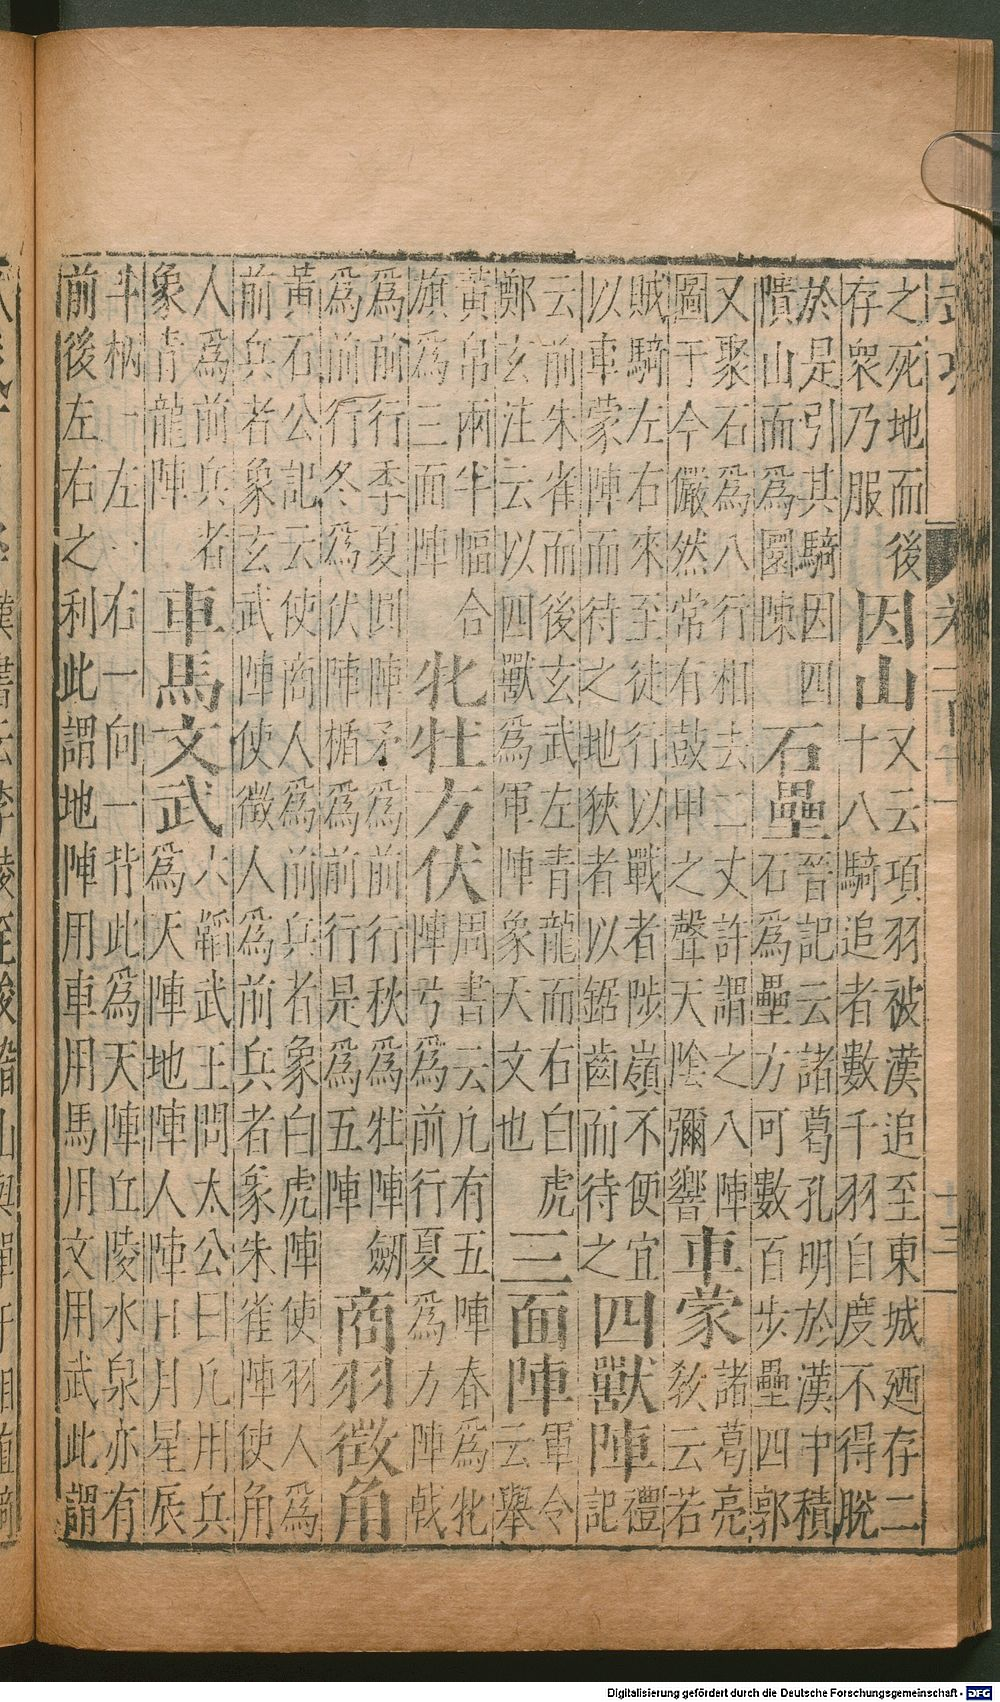 十三
之死地而後
存衆乃服
因山
又云項羽被漢追至東城廼存二
十八騎追者數千羽自度不得脫
於是引其騎因四
隤山而爲圜陳
石壘
晉記云諸葛孔明於漢中積
石爲壘方可數百步壘四郭
又聚石爲八行相去二丈許謂之八陣
圖于今儼然常有鼓甲之聲天陰彌響
車蒙
諸葛亮
敎云若
賊騎左右來至徒行以戰者陟嶺不便宜
以車蒙陣而待之地狹者以鋸齒而待之
四獸陣
禮
記
云前朱雀而後玄武左青龍而右白虎
鄭玄注云以四獸爲軍陣象天文也
三面陣
軍令
云舉
黃帛兩半幅合
旗爲三面陣
牝牡方伏
周書云凡有五陣春爲牝
陣弓爲前行夏爲方陣戟
爲前行季夏圓陣矛爲前行秋爲牡陣劒
爲前行冬爲伏陣楯爲前行是爲五陣
商羽徵角
黃石公記云使商人爲前兵者象白虎陣使羽人爲
前兵者象玄武陣使徵人爲前兵者象朱雀陣使角
人爲前兵者
象青龍陣
車馬文武
六韜武王問太公曰凡用兵
爲天陣地陣人陣日月星辰
斗柄一左一右一向一背此爲天陣丘陵水泉亦有
前後左右之利此謂地陣用車用馬用文用武此謂
漢書云李陵至浚稽山與單于相值騎
Digitalisierung gefördert durch die Deutsche Forschungsgemeinschaft - DFG